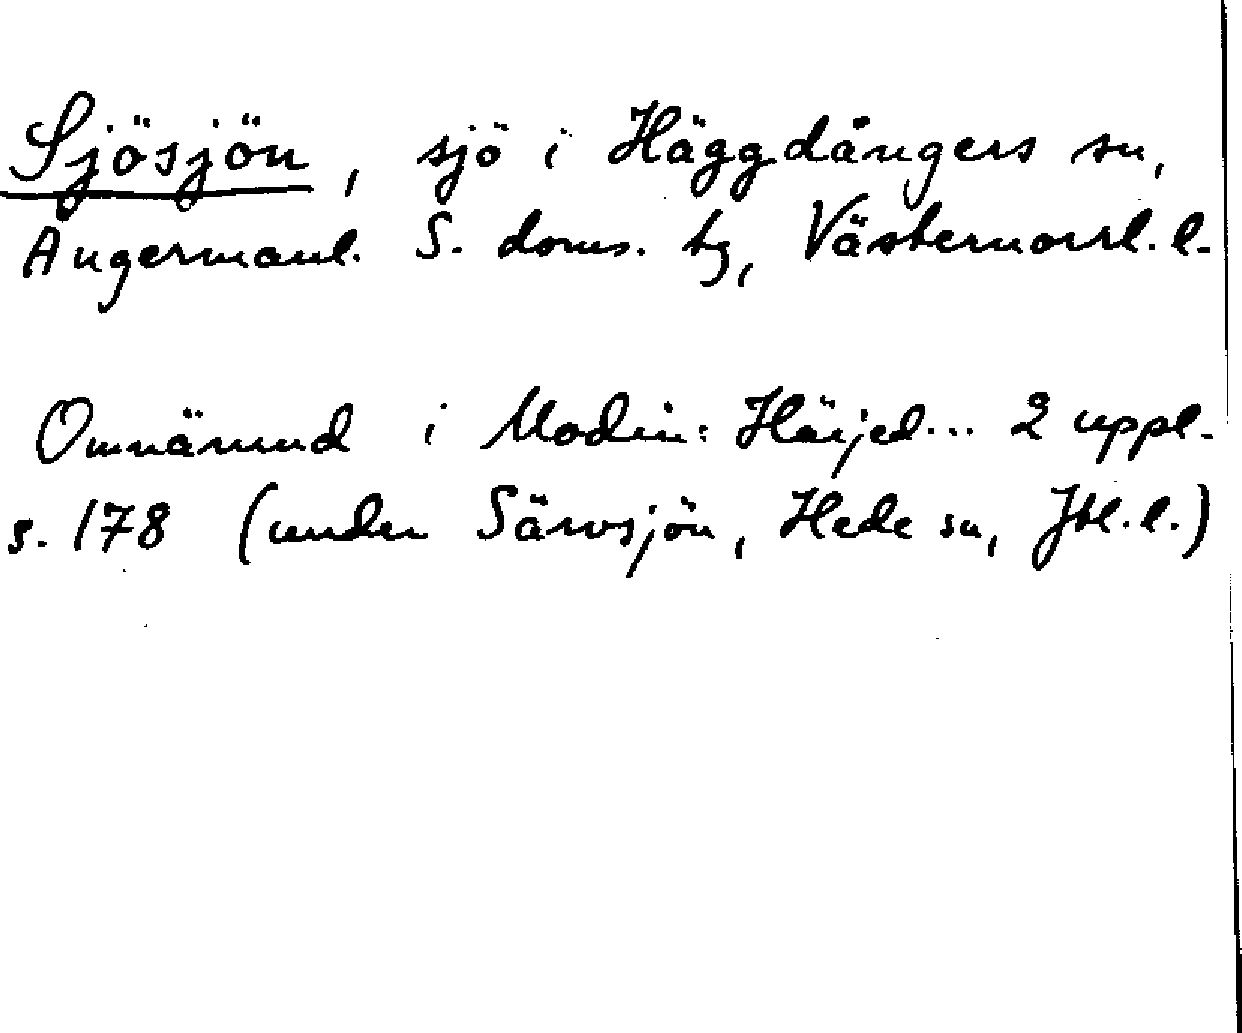 Sjösjön, sjö i Häggdångers sn,
Ångermanl. S. doms. tg, Västernorrl. l.
Omnämnd i Modin: Härjed... 2 uppl.
s. 178 (under Särvsjön, Hede sn, Jtl. l.)